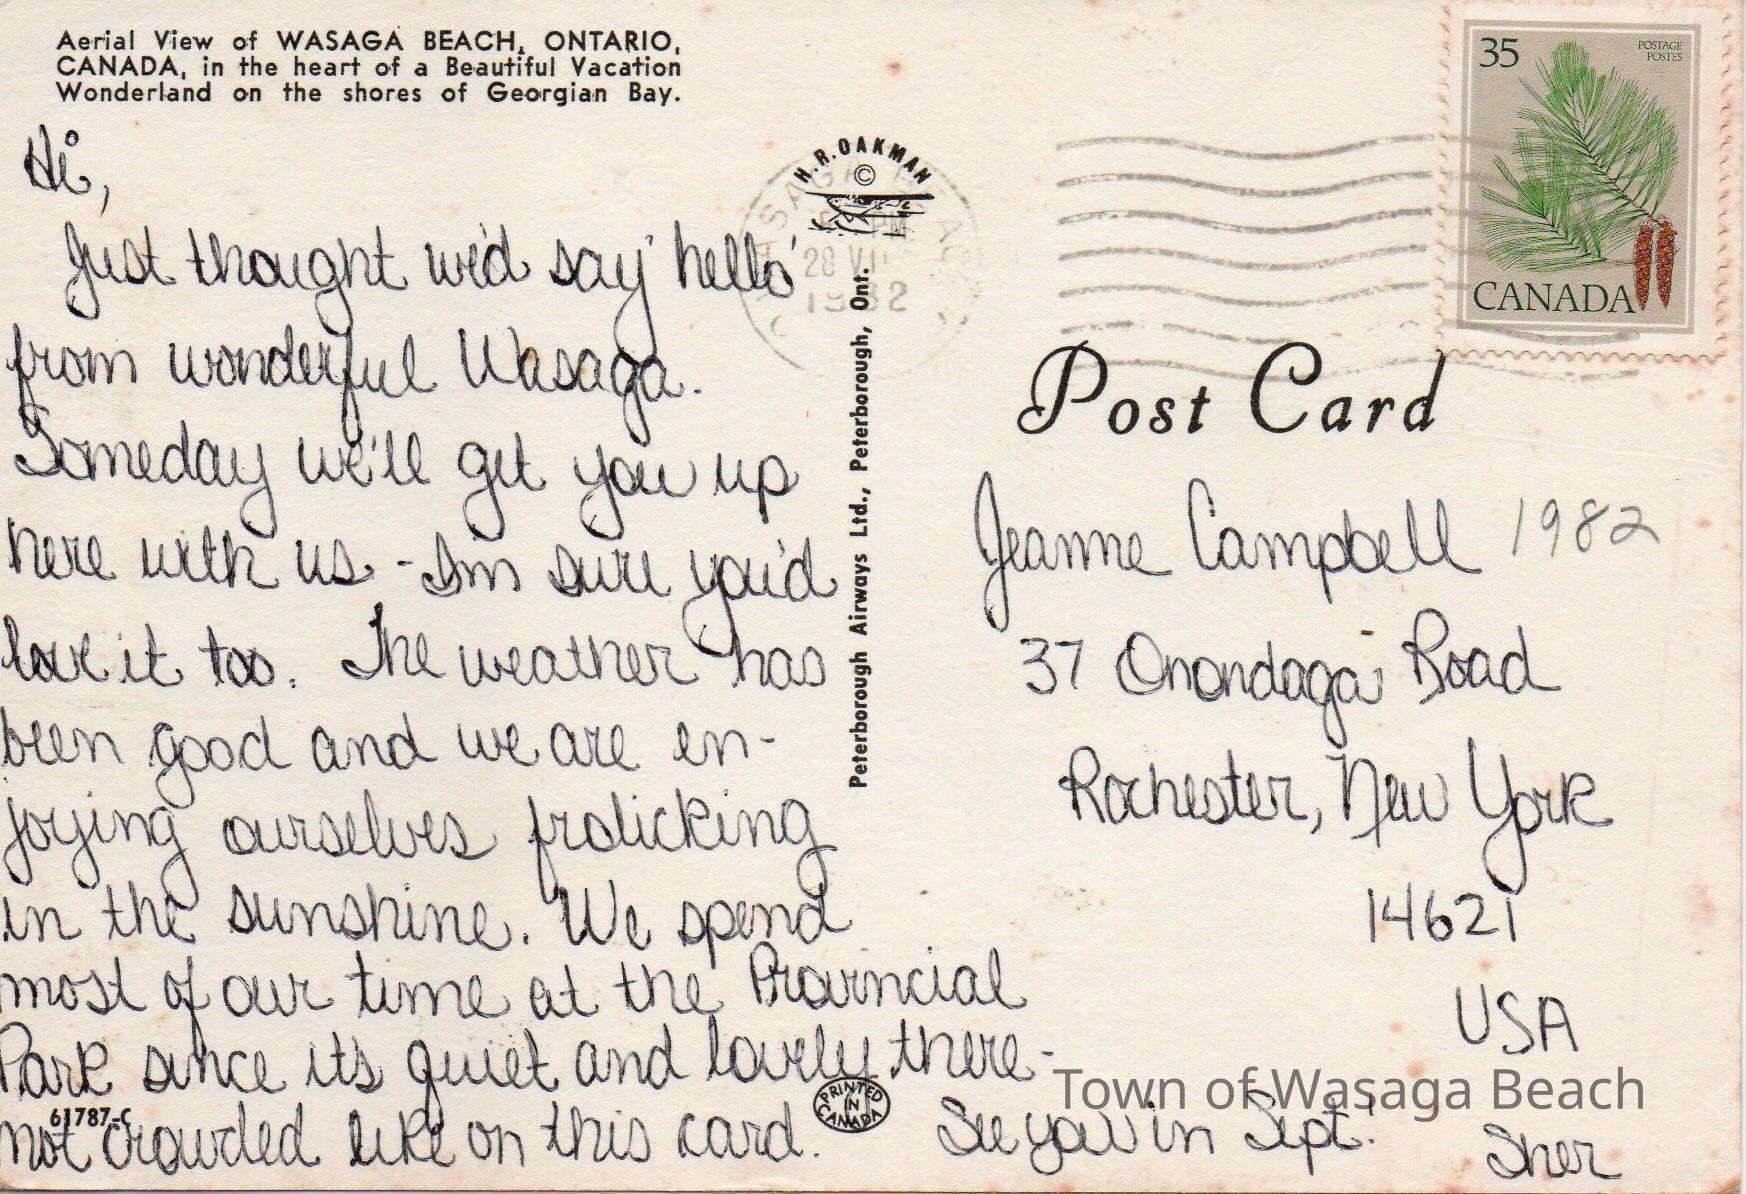 Aerial View of WASAGA BEACH, ONTARIO,
CANADA, in the heart of a Beautiful Vacation
Wonderland on the shores of Georgian Bay.
Hi,
Just thought we'd say 'hello'
from wonderful Wasaga.
Someday we'll get you up
here with us - I'm sure you'd
love it too. The weather has
been good and we are en-
joying ourselves frolicking
in the sunshine. We spend
most of our time at the Provincial
Park since it's quiet and lovely there -
not crowded like on this card. See you in Sept!
Sher
61787-C
PRINTED
IN
CANADA
H.R.OAKMAN
©
Peterborough Airways Ltd., Peterborough, Ont.
PM
28 VI
1982
35
POSTAGE
POSTES
CANADA
Post Card
Jeanne Campbell 1982
37 Onondaga Road
Rochester, New York
14621
USA
Town of Wasaga Beach